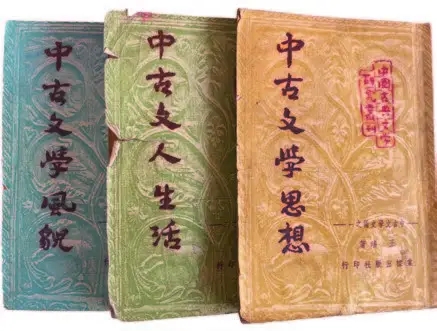 中古文學風貌
中古文人生活
中古文學思想
王瑤著
棠棣出版社印行